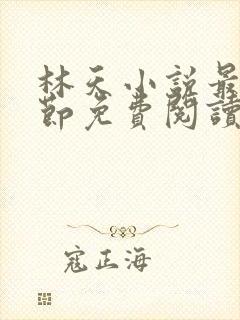 林天小說最
節免費閱讀
寇正海